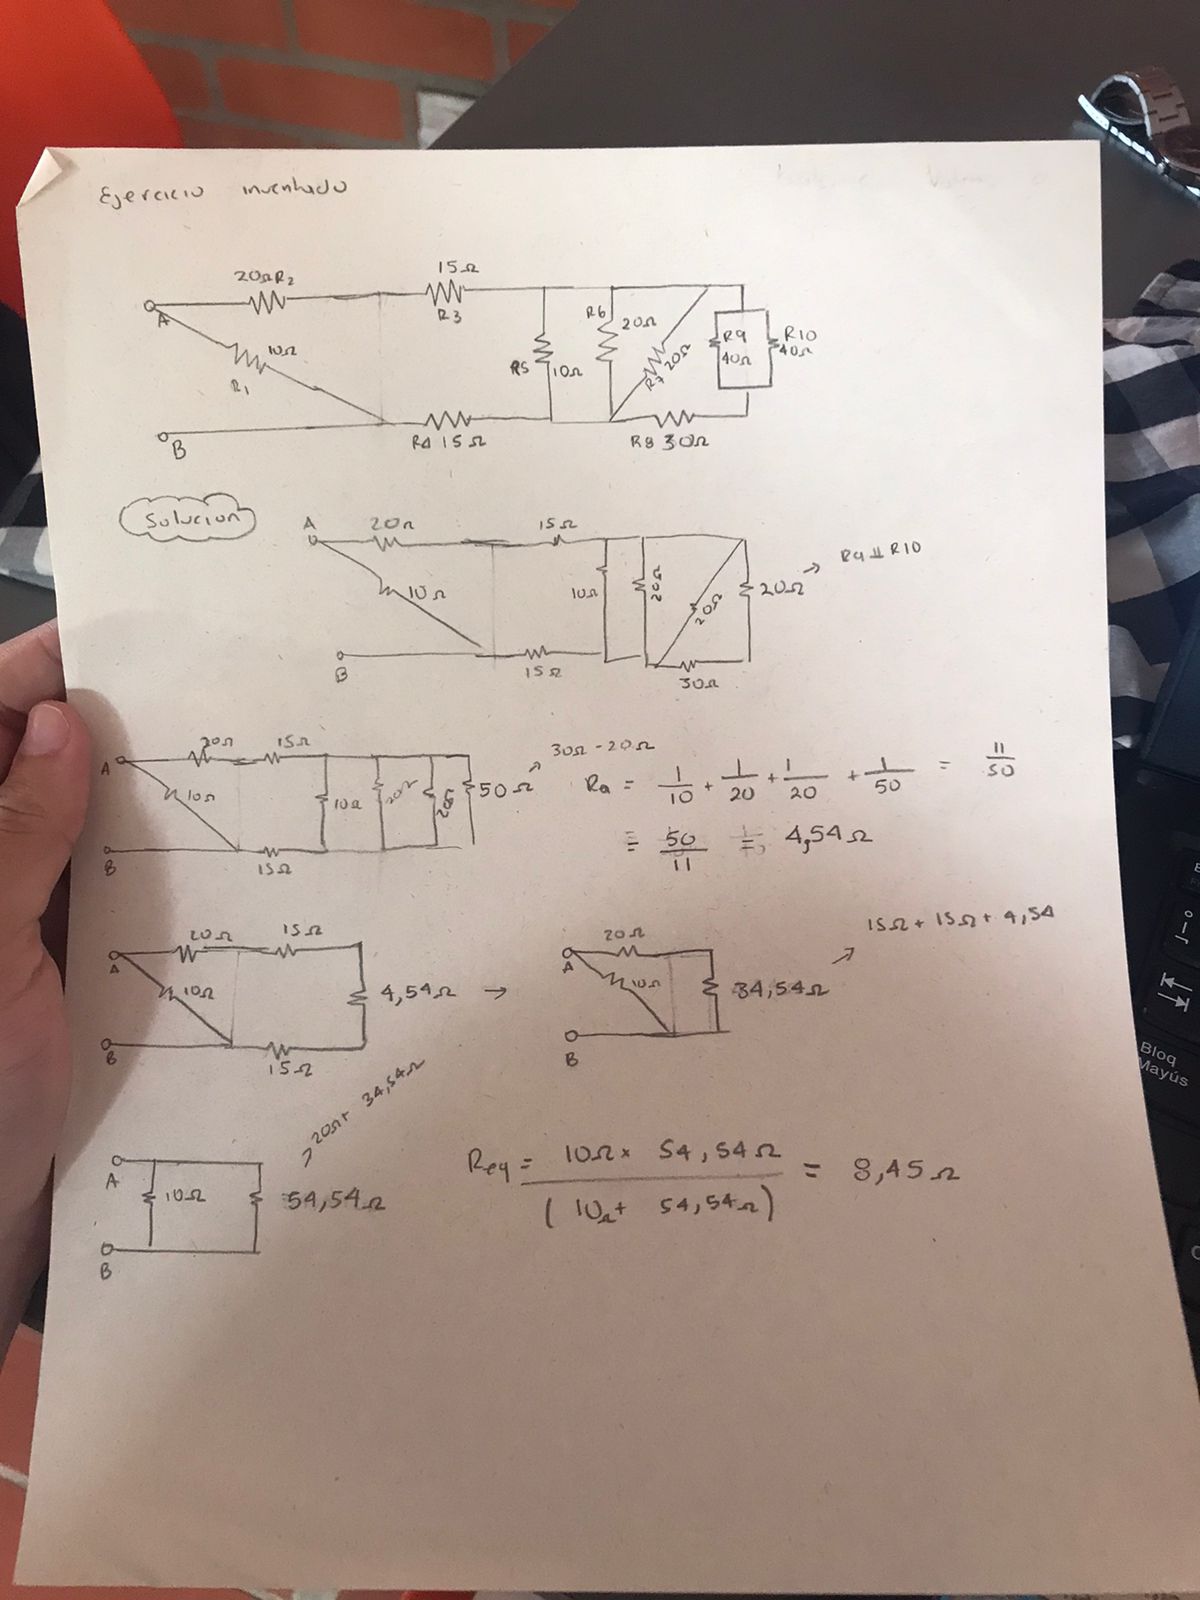 Ejercicio inventado
20Ω R2
15Ω
R3
A
10Ω
R1
B
R4 15Ω
R5 10Ω
R6 20Ω
R7 20Ω
R8 30Ω
R9 40Ω
R10 40Ω
Solucion
A 20Ω 15Ω
10Ω 10Ω 20Ω 20Ω 20Ω → R9 || R10
B 15Ω 30Ω
20Ω 15Ω 30Ω - 20Ω
A 10Ω 10Ω 20Ω 20Ω 50Ω
B 15Ω
Ra = 1/10 + 1/20 + 1/20 + 1/50 = 11/50
= 50/11 = 4,54Ω
20Ω 15Ω
A 10Ω 4,54Ω →
B 15Ω
20Ω 15Ω + 15Ω + 4,54
A 10Ω 34,54Ω
B
20Ω + 34,54Ω
A 10Ω 54,54Ω
B
Req = 10Ω x 54,54Ω / (10Ω + 54,54Ω) = 8,45Ω
Bloq
Mayús